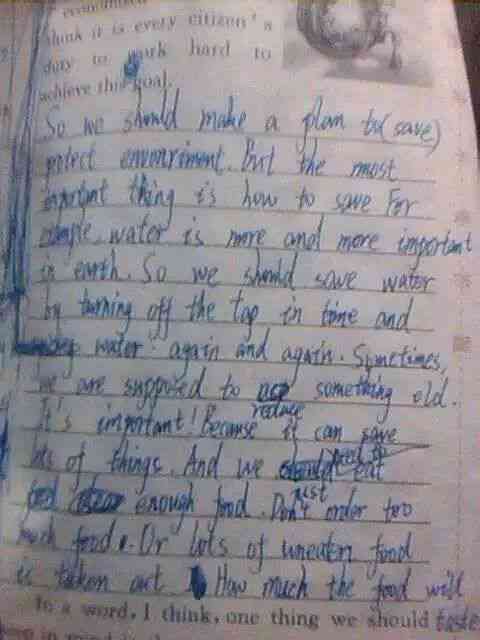 economical
think it is every citizen's
duty to work hard to
achieve this goal.
So we should make a plan to (save)
potect envonriment. But the most
important thing is how to save For
example, water is more and more important
in earth. So we should save water
by turning off the tap in time and
water again and again. Sometimes,
we are supposed to something old.
reduce
It's important! Because it can save
lots of things. And we need to eat
just
enough food. Don't order too
much food. Or lots of uneaten food
is taken out How much the food will
In a word, I think, one thing we should taste